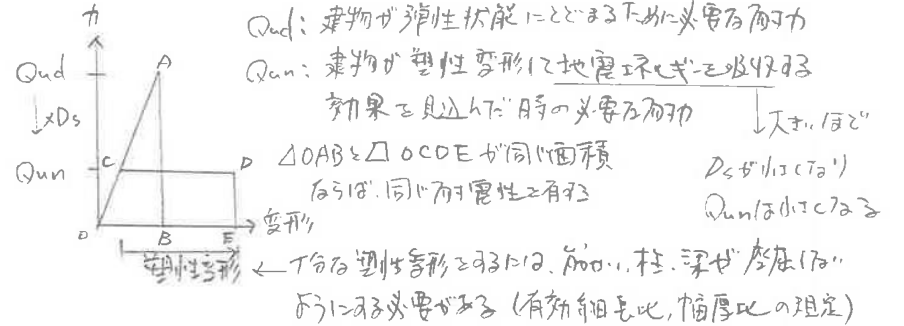 力
Qud
↓×Ds
Qun
A
C
D
O
B
E
変形
塑性変形
Qud: 建物が弾性状態にとどまるために必要な耐力
Qun: 建物が塑性変形して地震エネルギーを吸収する
効果を見込んだ時の必要な耐力
↓大きいほど
Dsが小さくなり
Qunは小さくなる
△OABと□OCDEが同じ面積
ならば、同じ耐震性を有する
←十分な塑性変形をするには、筋かい、柱、梁が座屈しない
ようにする必要がある(有効細長比,幅厚比の規定)